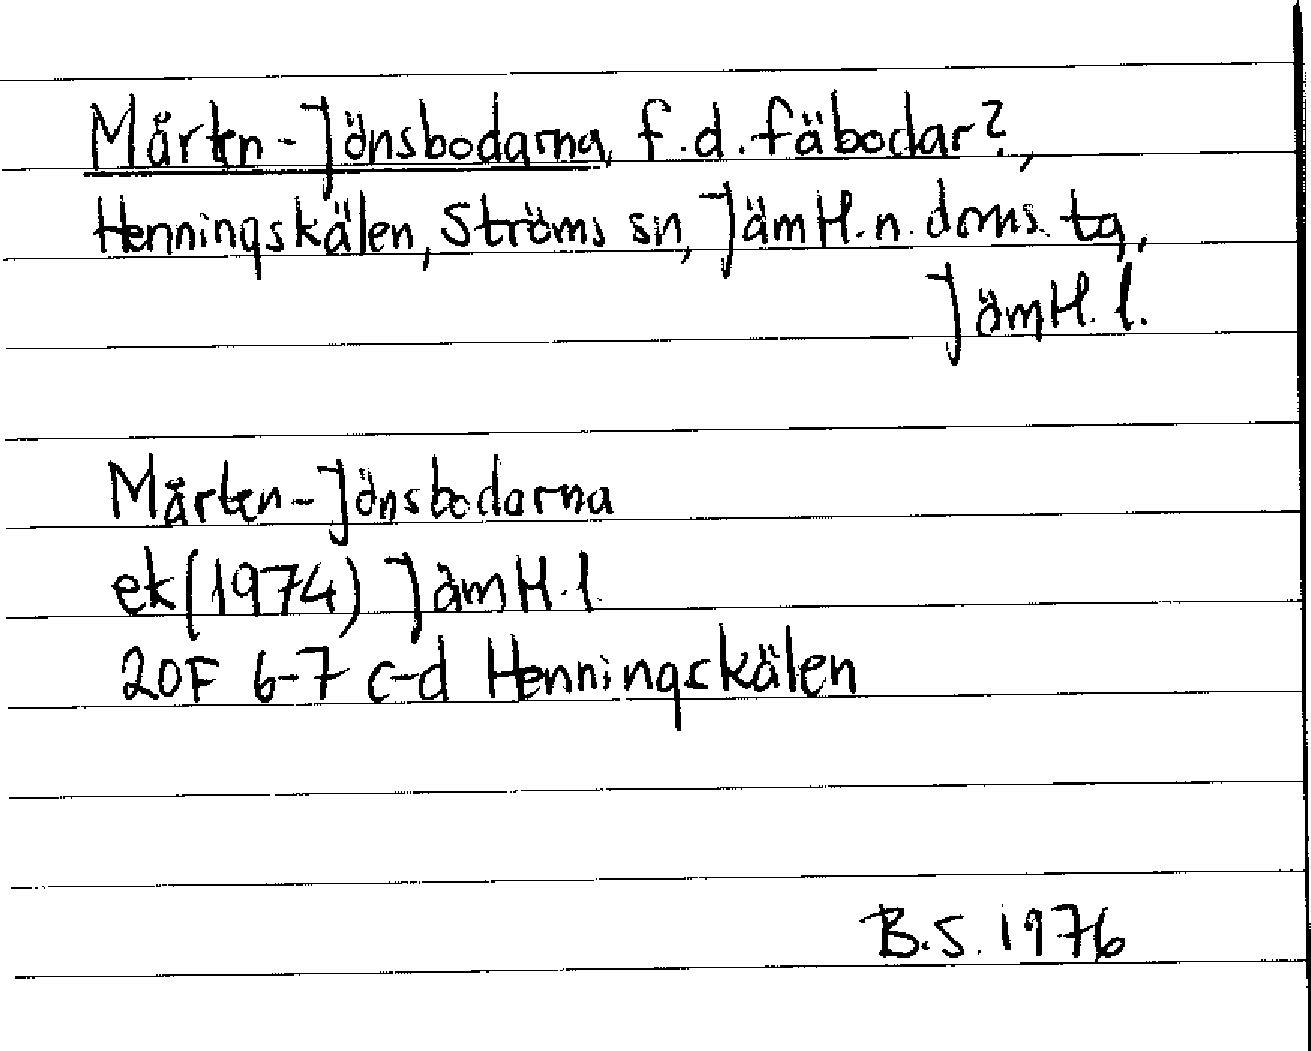 Mårten-Jönsbodarna, f.d. fäbodar?,
Henningskälen, Ströms sn, Jämtl.n. doms. tg,
Jämtl. l.
Mårten-Jönsbodarna
ek (1974) Jämtl. l.
20F 6-7 c-d Henningskälen
B.S. 1976